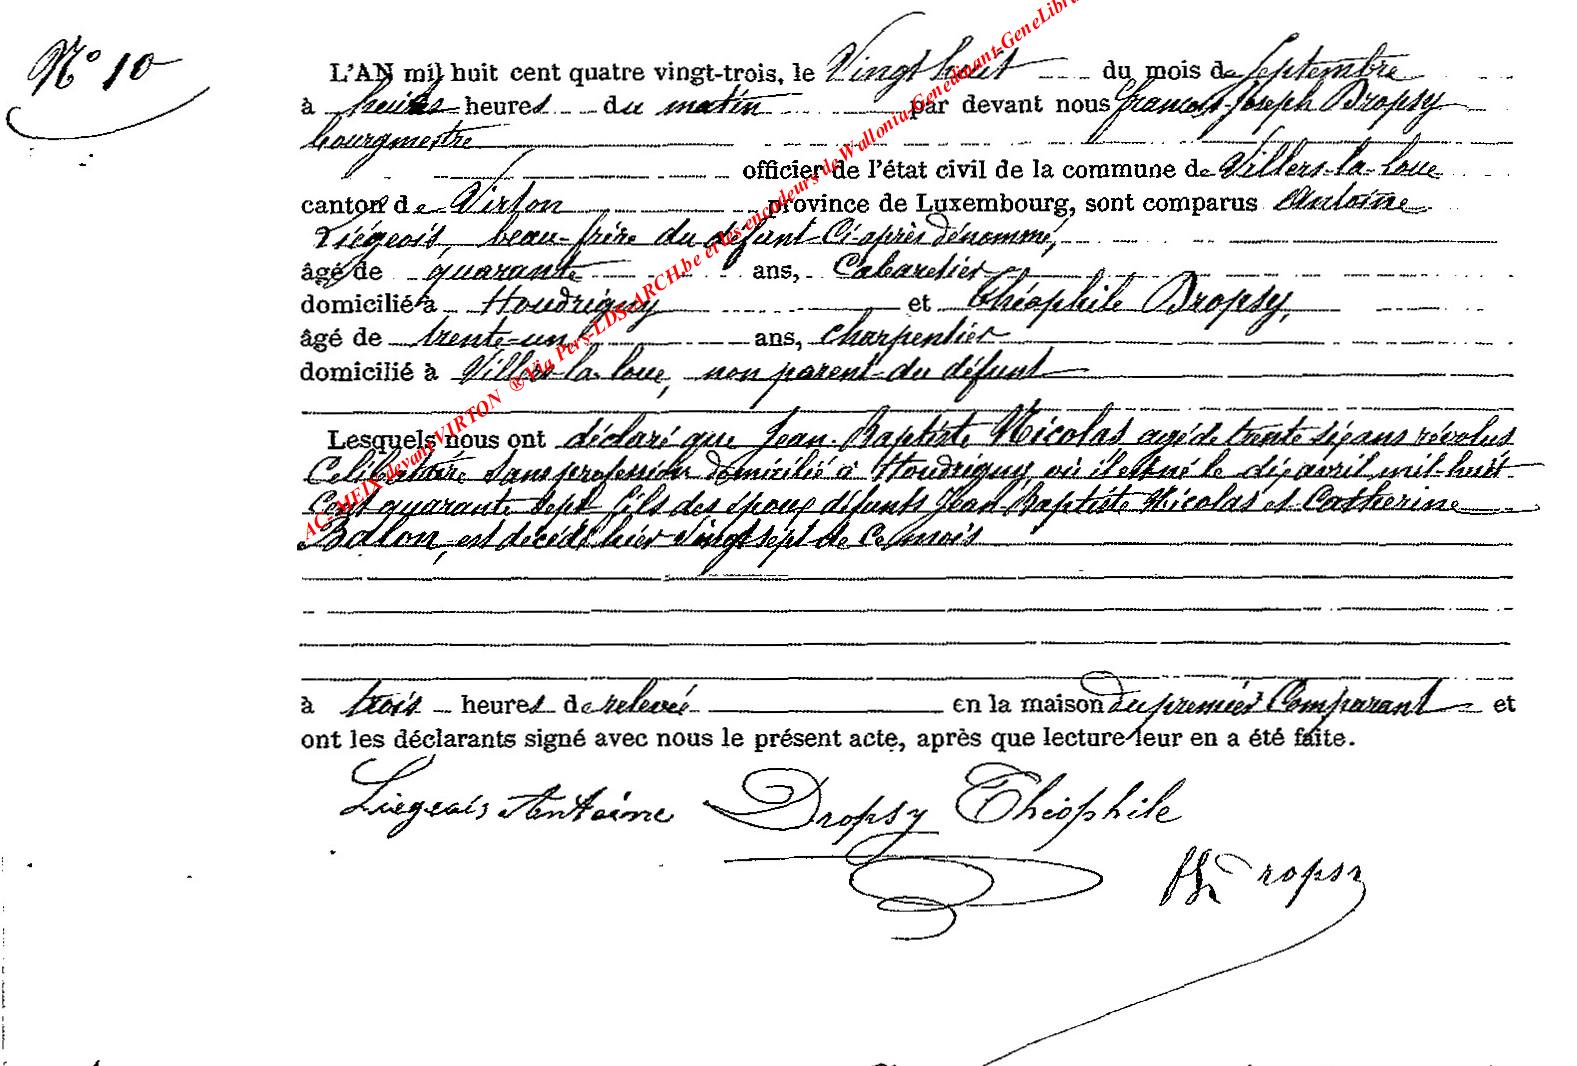 N° 10
L'AN mil huit cent quatre vingt-trois, le Vingt huit du mois de Septembre
à huit heures du matin par devant nous francois-Joseph Dropsy
bourgmestre
officier de l'état civil de la commune de Villers-la-loue
canton de Virton province de Luxembourg, sont comparus Antoine
Liégeois, beau-frère du défunt Ci-après dénommé,
âgé de quarante ans, Cabaretier
domicilié à Houdrigny et Théophile Dropsy,
âgé de trente-un ans, charpentier
domicilié à Villers-la loue, non parent du défunt
Lesquels nous ont déclaré que Jean-Baptiste Nicolas agé de trente six ans révolus
Celibataire sans profession domicilié à Houdrigny où il est né le dix avril mil-huit
Cent quarante sept fils des époux défunts Jean Baptiste Nicolas et Catherine
Balon, est décédé hier vingt sept de ce mois
à trois heures de relevée en la maison du premier Comparant et
ont les déclarants signé avec nous le présent acte, après que lecture leur en a été faite.
Liégeois Antoine Dropsy Théophile
Dropsy
AC-MEIX devant VIRTON ® Via Pers-LDS-ARCH.be et les encodeurs de Wallonia-Genedinant-GeneLibra